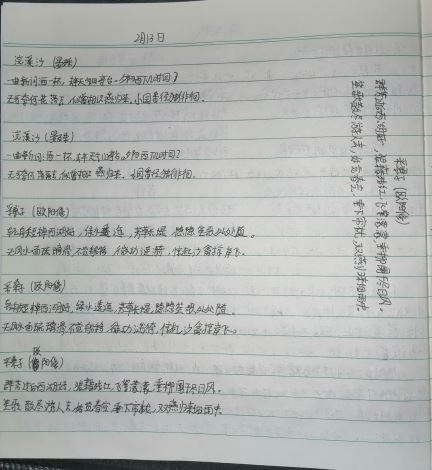 2月13日
浣溪沙（晏殊）
一曲新词酒一杯，去年天气旧亭台。夕阳西下几时回？
无可奈何花落去，似曾相识燕归来。小园香径独徘徊。
浣溪沙（晏殊）
一曲新词酒一杯，去年天气旧亭台。夕阳西下几时回？
无可奈何花落去，似曾相识燕归来。小园香径独徘徊。
采桑子（欧阳修）
轻舟短棹西湖好，绿水逶迤，芳草长堤，隐隐笙歌处处随。
无风水面琉璃滑，不觉船移，微动涟漪，惊起沙禽掠岸飞。
采桑子（欧阳修）
轻舟短棹西湖好，绿水逶迤，芳草长堤，隐隐笙歌处处随。
无风水面琉璃滑，不觉船移，微动涟漪，惊起沙禽掠岸飞。
采桑子（欧阳修）
群芳过后西湖好，狼籍残红，飞絮濛濛，垂柳阑干尽日风。
笙歌散尽游人去，始觉春空，垂下帘栊，双燕归来细雨中。
采桑子（欧阳修）
群芳过后西湖好，狼籍残红，飞絮濛濛，垂柳阑干尽日风。
笙歌散尽游人去，始觉春空，垂下帘栊，双燕归来细雨中。